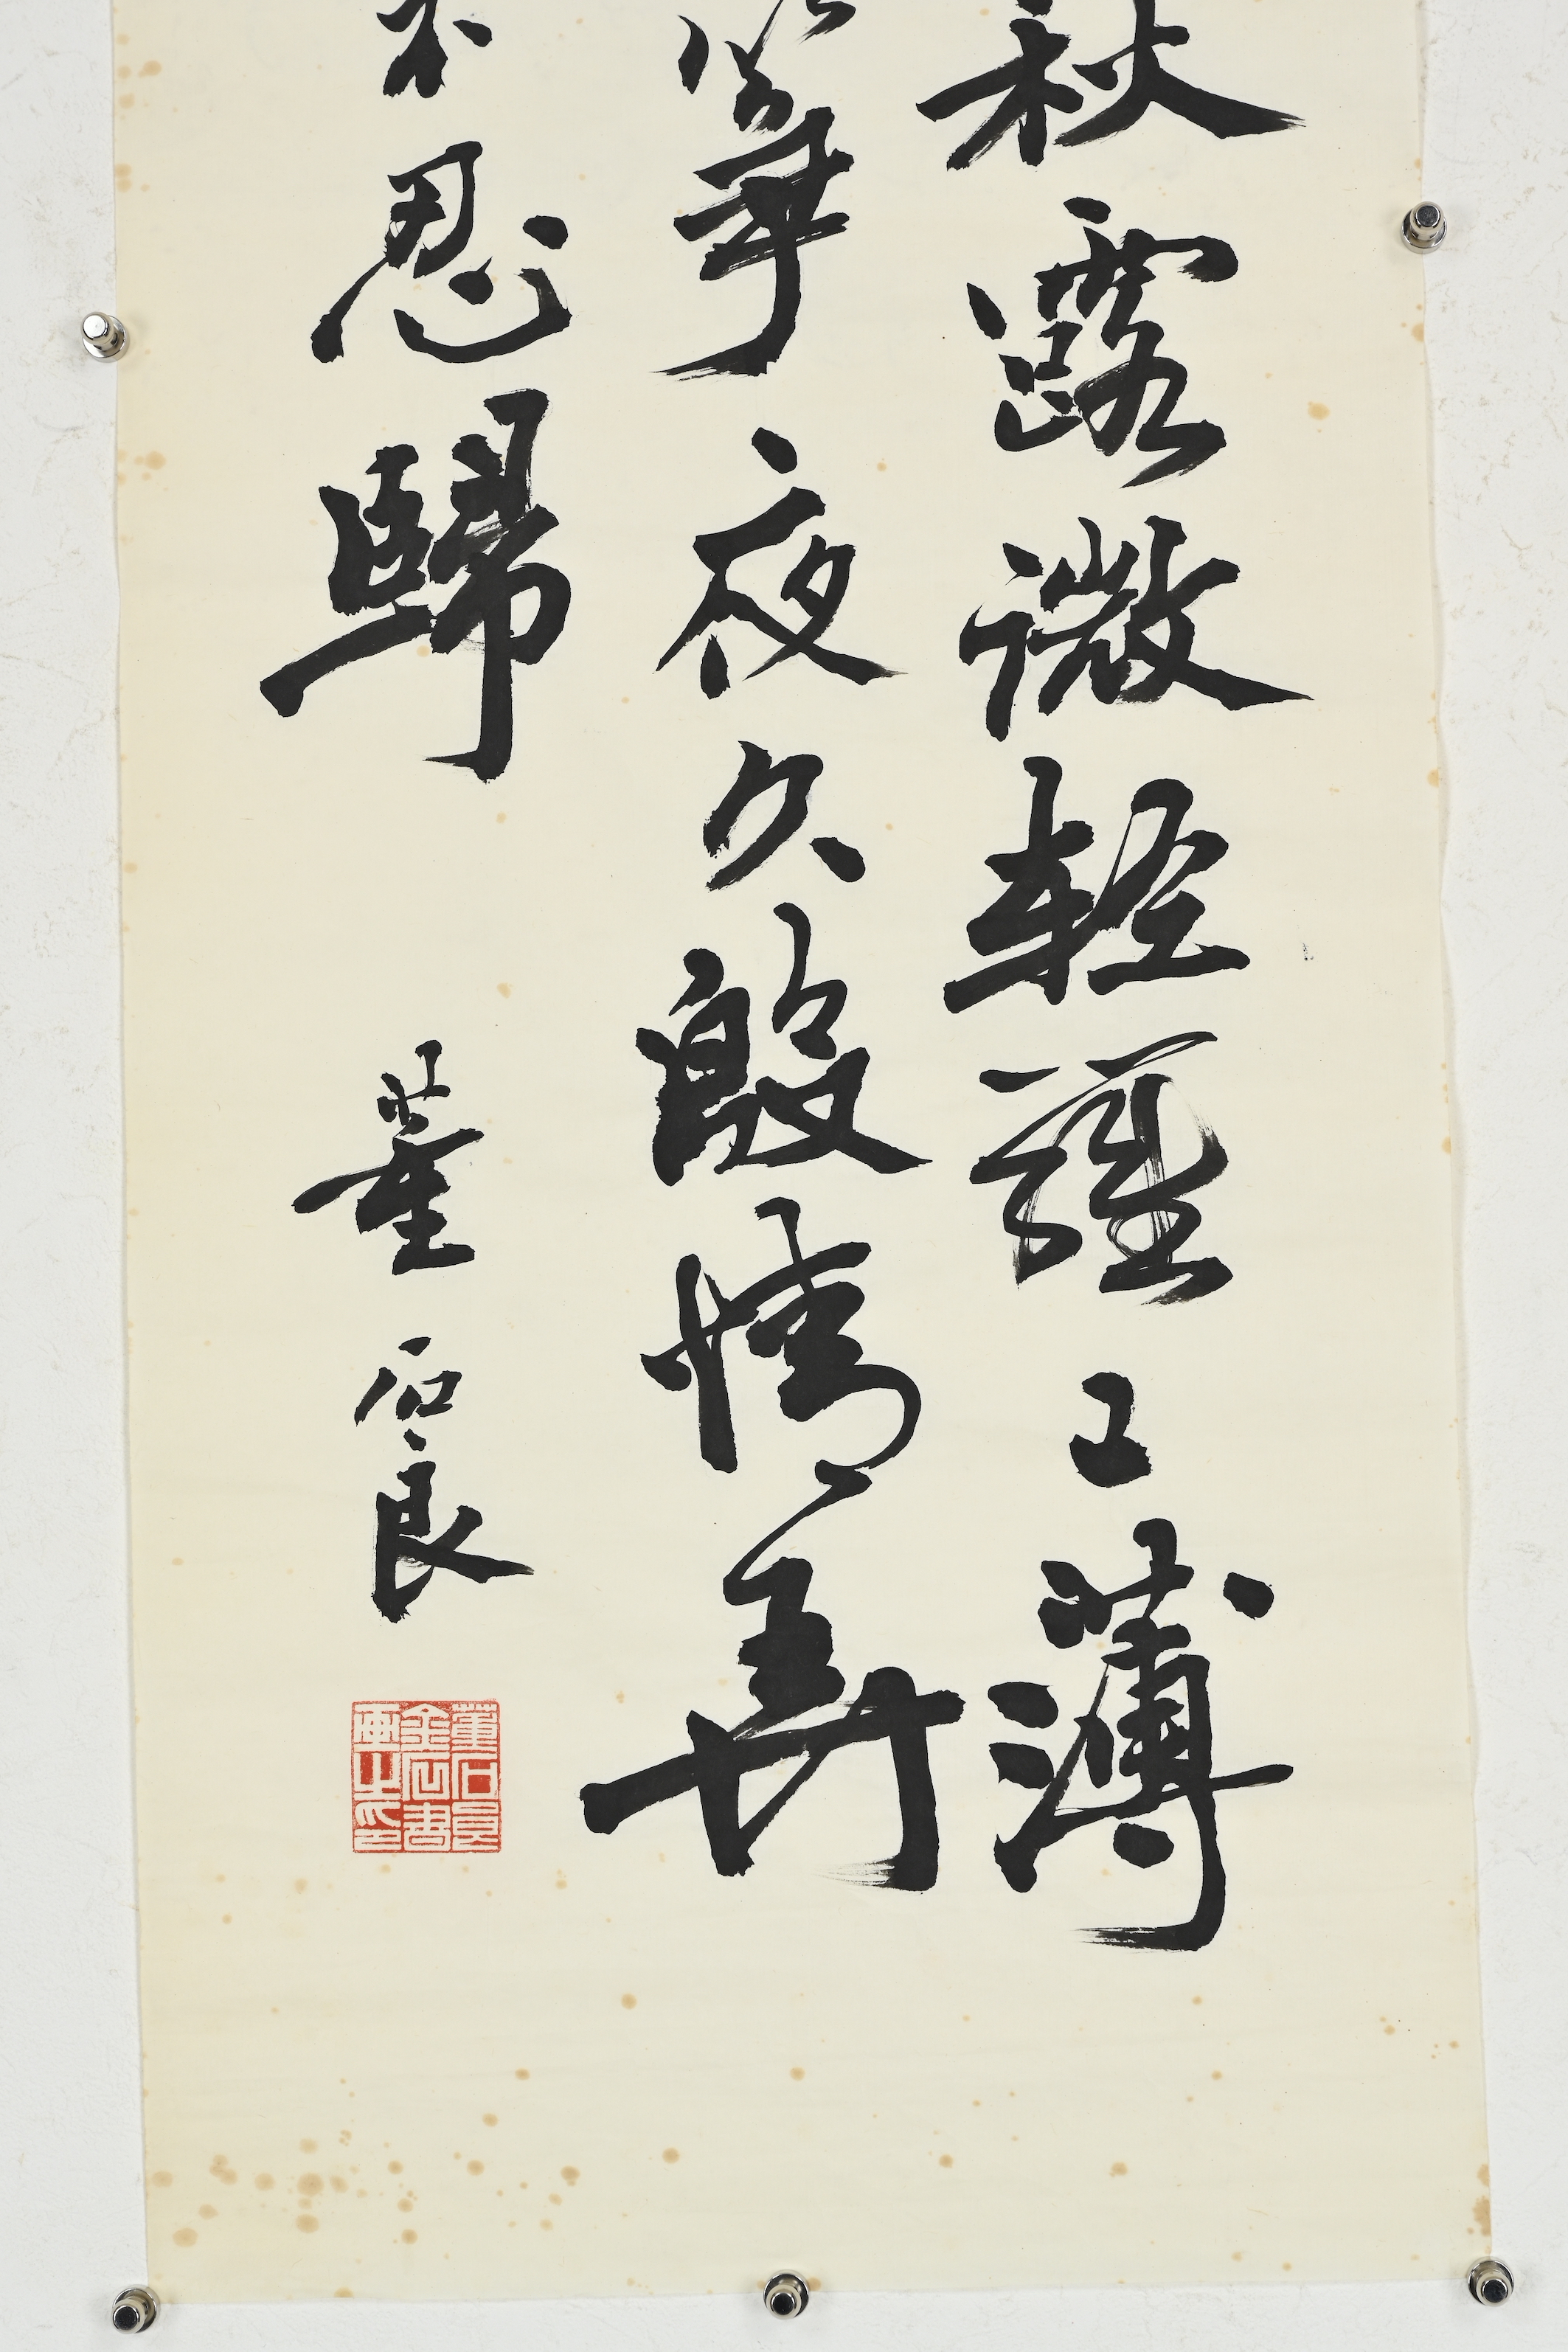 秋露微輕羅已薄
箏夜久殷情弄
不忍歸
董石良
董石良
金石書
畫之印